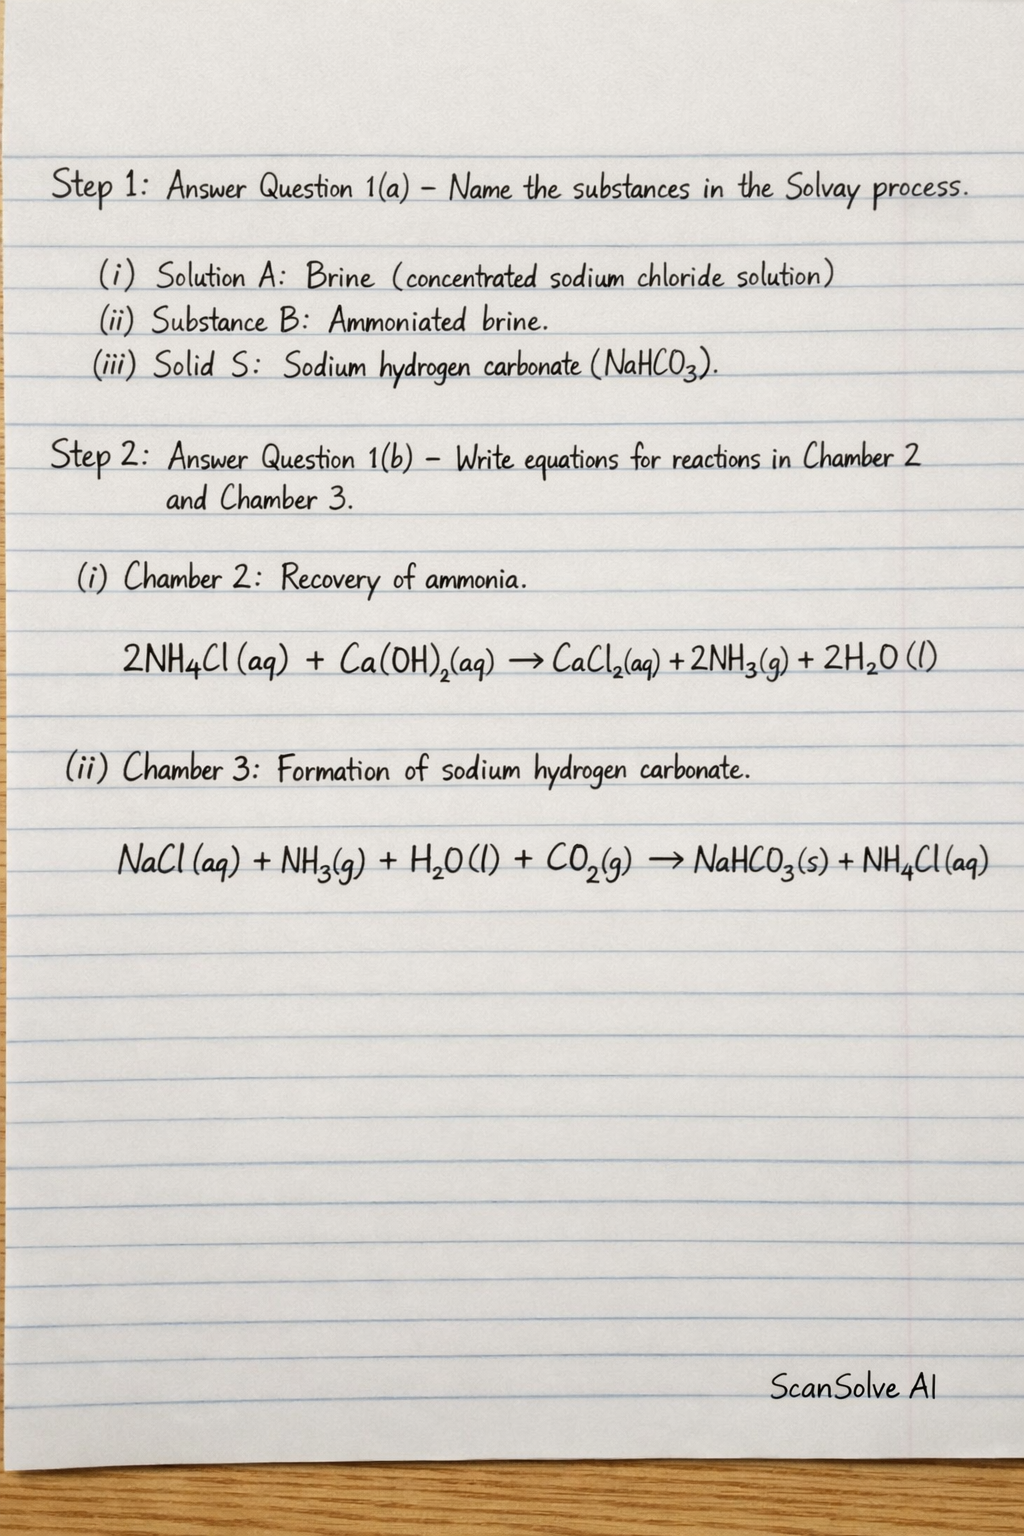 Step 1: Answer Question 1(a) – Name the substances in the Solvay process.
(i) Solution A: Brine (concentrated sodium chloride solution)
(ii) Substance B: Ammoniated brine.
(iii) Solid S: Sodium hydrogen carbonate (NaHCO₃).
Step 2: Answer Question 1(b) – Write equations for reactions in Chamber 2
and Chamber 3.
(i) Chamber 2: Recovery of ammonia.
2NH₄Cl (aq) + Ca(OH)₂(aq) → CaCl₂(aq) + 2NH₃(g) + 2H₂O (l)
(ii) Chamber 3: Formation of sodium hydrogen carbonate.
NaCl (aq) + NH₃(g) + H₂O (l) + CO₂(g) → NaHCO₃(s) + NH₄Cl (aq)
ScanSolve AI